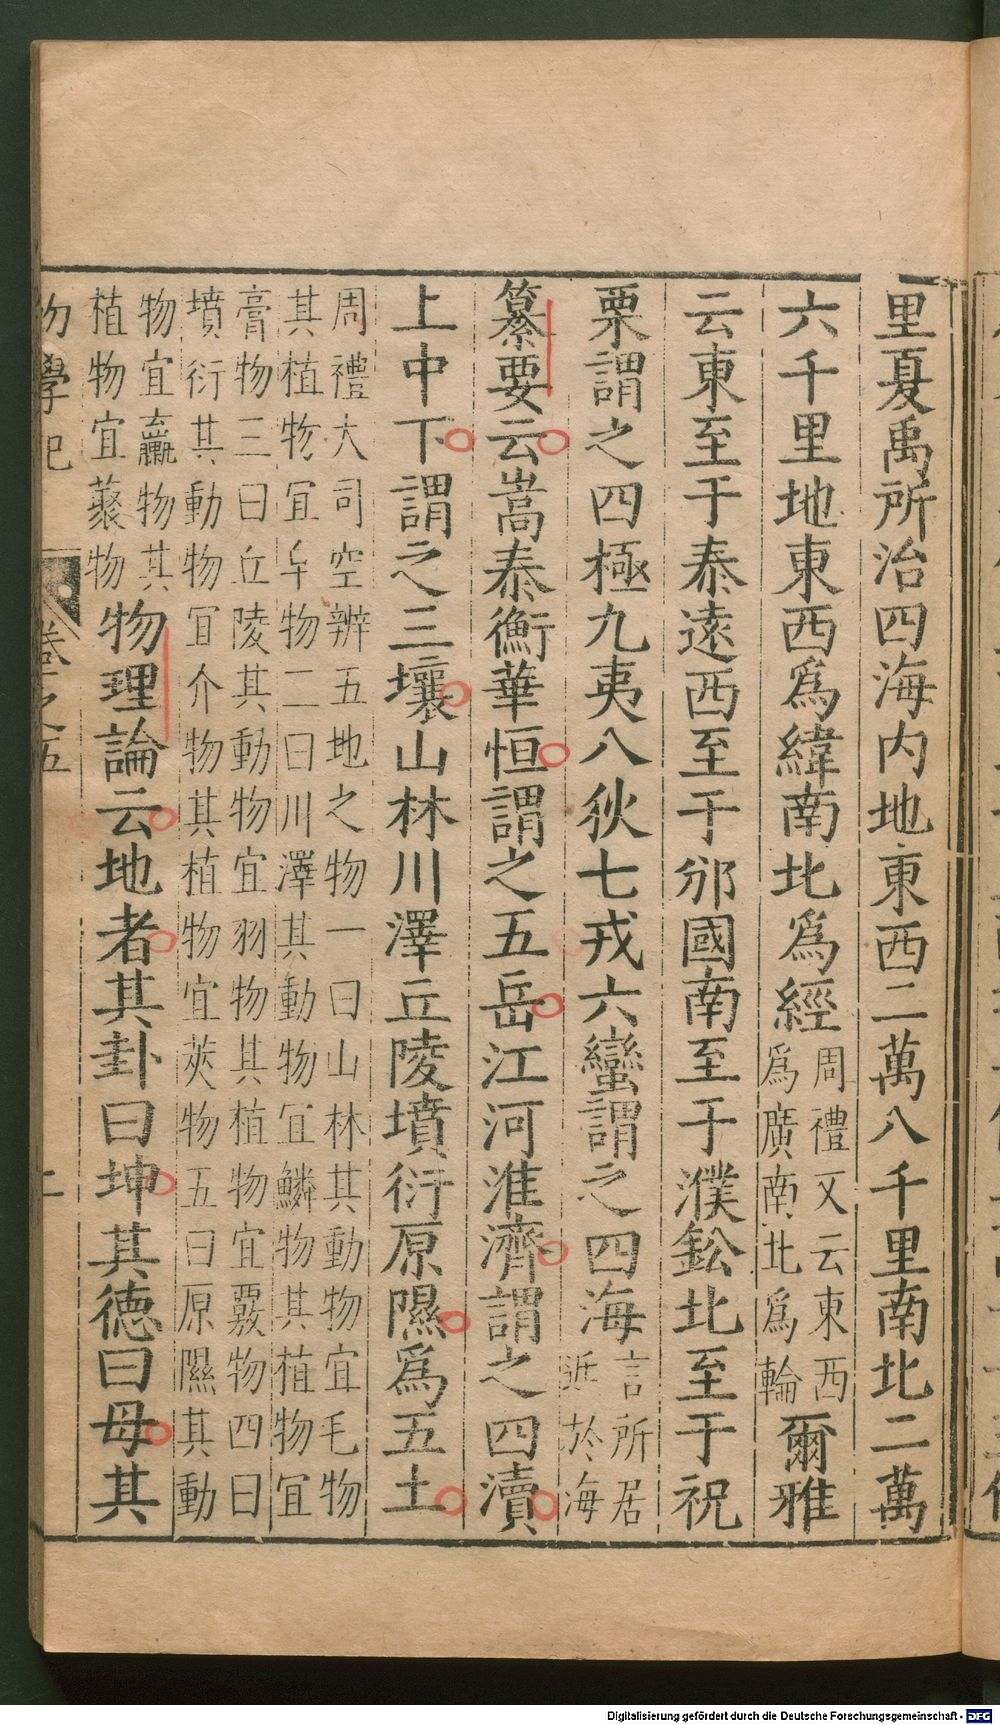 里夏禹所治四海内地東西二萬八千里南北二萬
六千里地東西爲緯南北爲經
周禮又云東西
爲廣南北爲輪
爾雅
云東至于泰遠西至于邠國南至于濮鈆北至于祝
栗謂之四極九夷八狄七戎六蠻謂之四海
言所居
近於海
纂要云嵩泰衡華恒謂之五岳江河淮濟謂之四瀆
上中下謂之三壤山林川澤丘陵墳衍原隰爲五土
周禮大司空辨五地之物一曰山林其動物宜毛物
其植物宜皁物二曰川澤其動物宜鱗物其植物宜
膏物三曰丘陵其動物宜羽物其植物宜覈物四曰
墳衍其動物宜介物其植物宜莢物五曰原隰其動
物宜臝物其
植物宜藂物
物理論云地者其卦曰坤其德曰母其
初學記
卷之五
Digitalisierung gefördert durch die Deutsche Forschungsgemeinschaft - DFG